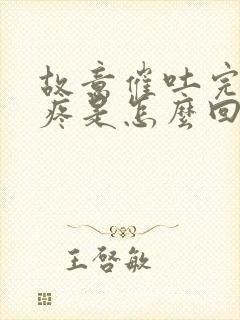 故意催吐完
疼是怎麼回
王啓敏